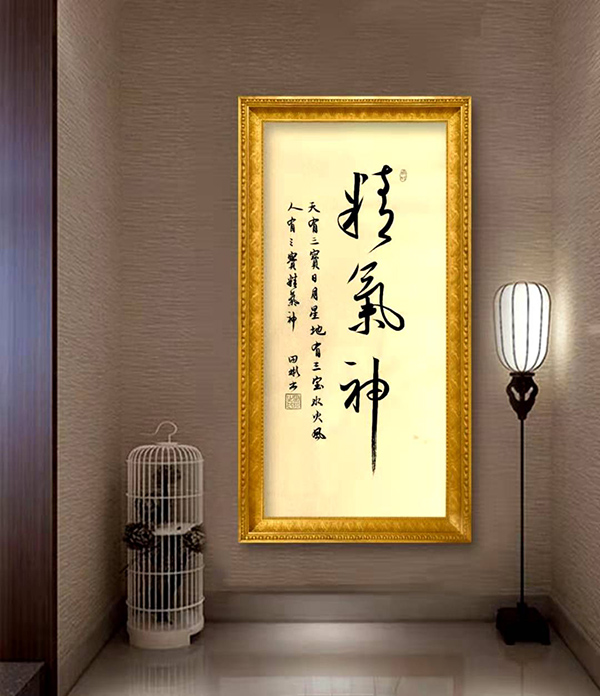 精氣神
天有三寳日月星地有三宝水火風
人有三寳精氣神
田彬书